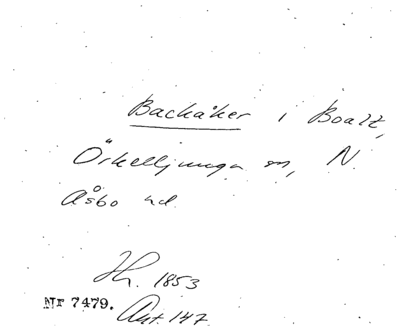 Backåker i Boalt,
Örkelljunga sn, N.
Åsbo hd.
Hr. 1853
Nr 7479. Ant. 147